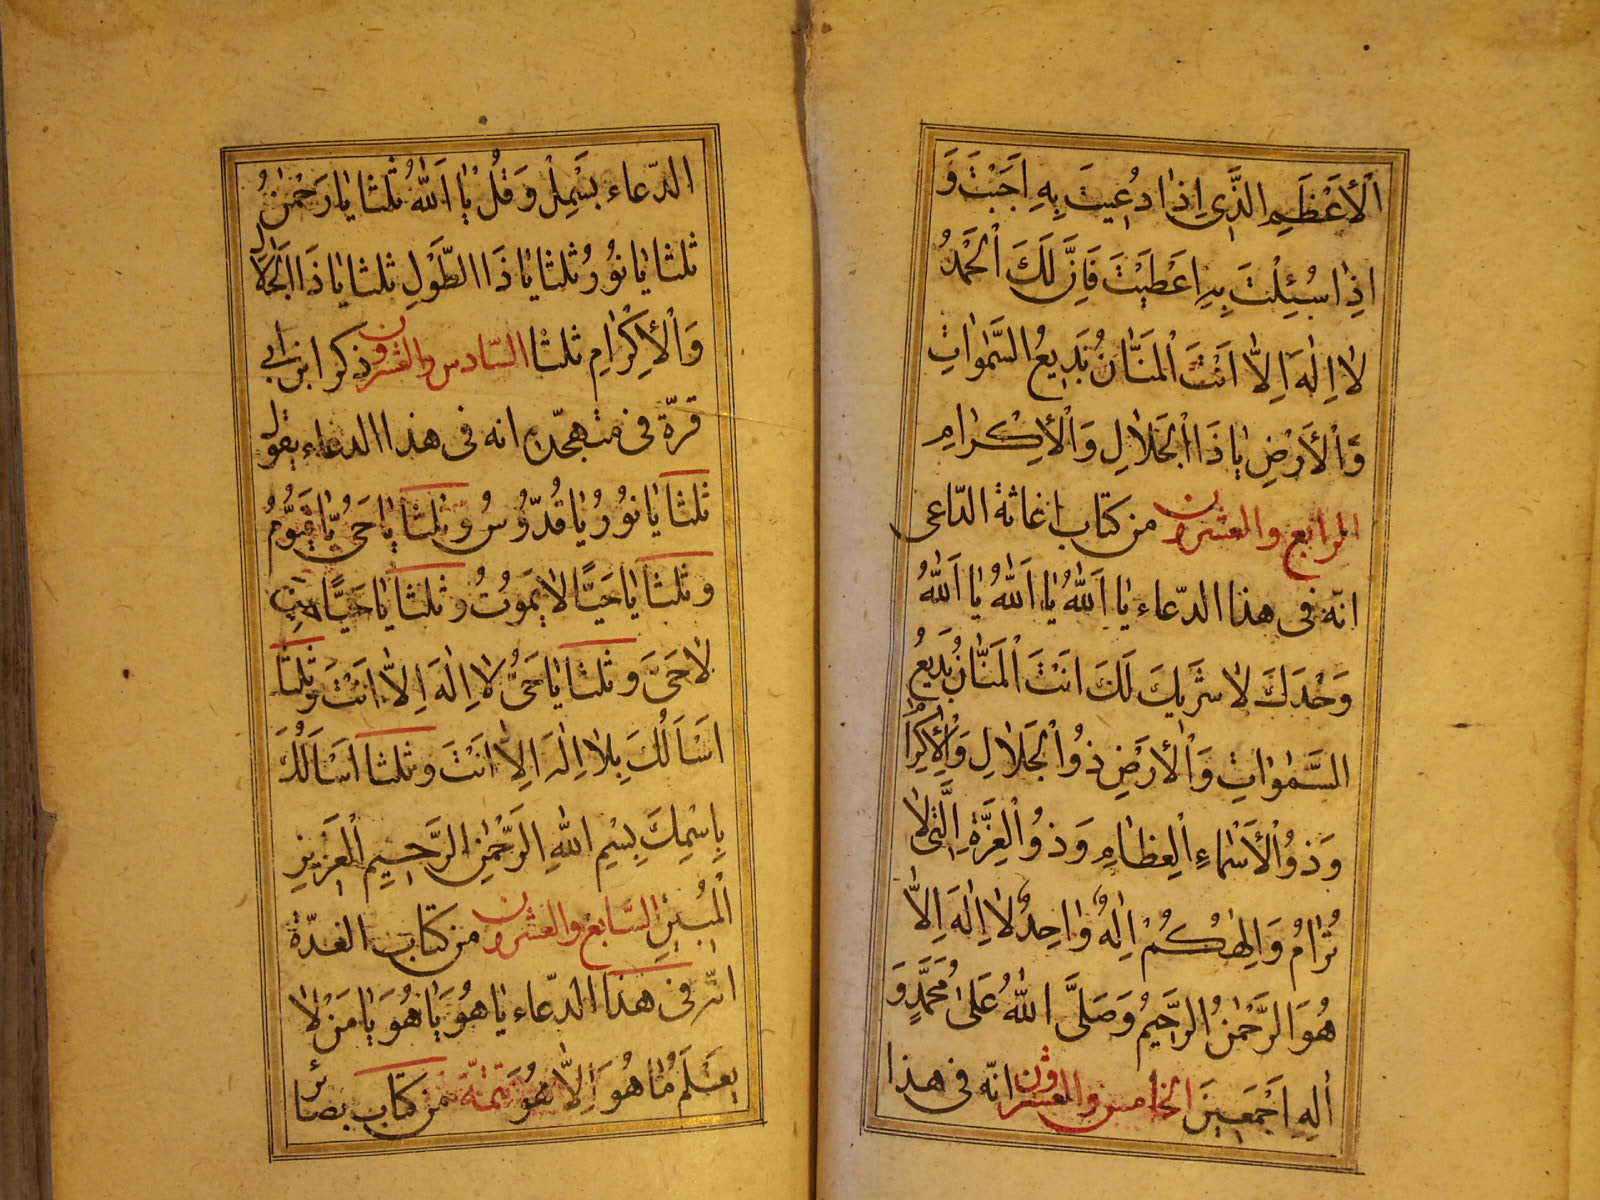 اَلْأَعْظَمِ الَّذِي اِذَا دُعِيتَ بِهِ اَجَبْتَ وَ
اِذَا سُئِلْتَ بِهِ اَعْطَيْتَ فَاِنَّ لَكَ اَلْحَمْدُ
لَا اِلٰهَ اِلَّا اَنْتَ اَلْمَنَّانُ بَدِيعُ السَّمٰوَاتِ
وَاَلْأَرْضِ يَا ذَا اَلْجَلَالِ وَالْأِكْرَامِ
الرابع والعشرون من كتاب اغاثة الدّاعى
انّه فى هذا الدّعاء يَا اَللّٰهُ يَا اَللّٰهُ يَا اَللّٰهُ
وَحْدَكَ لَا شَرِيكَ لَكَ اَنْتَ اَلْمَنَّانُ بَدِيعُ
السَّمٰوَاتِ وَاَلْأَرْضِ ذُو اَلْجَلَالِ وَاَلْأِكْرَامِ
وَذُو اَلْأَسْمَاءِ اَلْعِظَامِ وَذُو اَلْعِزَّةِ اَلَّتِى لَا
تُرَامُ وَاِلٰهُكُمْ اِلٰهٌ وَاحِدٌ لَا اِلٰهَ اِلَّا
هُوَ الرَّحْمٰنُ الرَّحِيمُ وَصَلَّى اللّٰهُ عَلَى مُحَمَّدٍ وَ
اٰلِهِ اَجْمَعِينَ الخامس والعشرون انّه فى هذا
الدّعاء بَسْمِلْ وَقُلْ يَا اَللّٰهُ ثلثا يَا رَحْمٰنُ
ثلثا يَا نُورُ ثلثا يَا ذَا الطَّوْلِ ثلثا يَا ذَا اَلْجَلَالِ
وَاَلْأِكْرَامِ ثلثا السّادس والعشرون ذكر ابن ابى
قرّة فى متهجّده انه فى هذا الدعاء يقول
ثلثا يَا نُورُ يَا قُدُّوسُ وثلثا يَا حَىُّ يَا قَيُّومُ
وثلثا يَا حَيًّا لَا يَمُوتُ وثلثا يَا حَيًّا حِينَ
لَا حَىَّ وثلثا يَا حَىُّ لَا اِلٰهَ اِلَّا اَنْتَ وثلثا
اَسْاَلُكَ بِلَا اِلٰهَ اِلَّا اَنْتَ وثلثا اَسْاَلُكَ
بِاِسْمِكَ بِسْمِ اللّٰهِ الرَّحْمٰنِ الرَّحِيمِ اَلْعَزِيزِ
اَلْمُبِينِ السّابع والعشرون من كتاب العدّة
انّه فى هذا الدّعاء يَا هُوَ يَا هُوَ يَا مَنْ لَا
يَعْلَمُ مَا هُوَ اِلَّا هُوَ تتمّة من كتاب بصائر